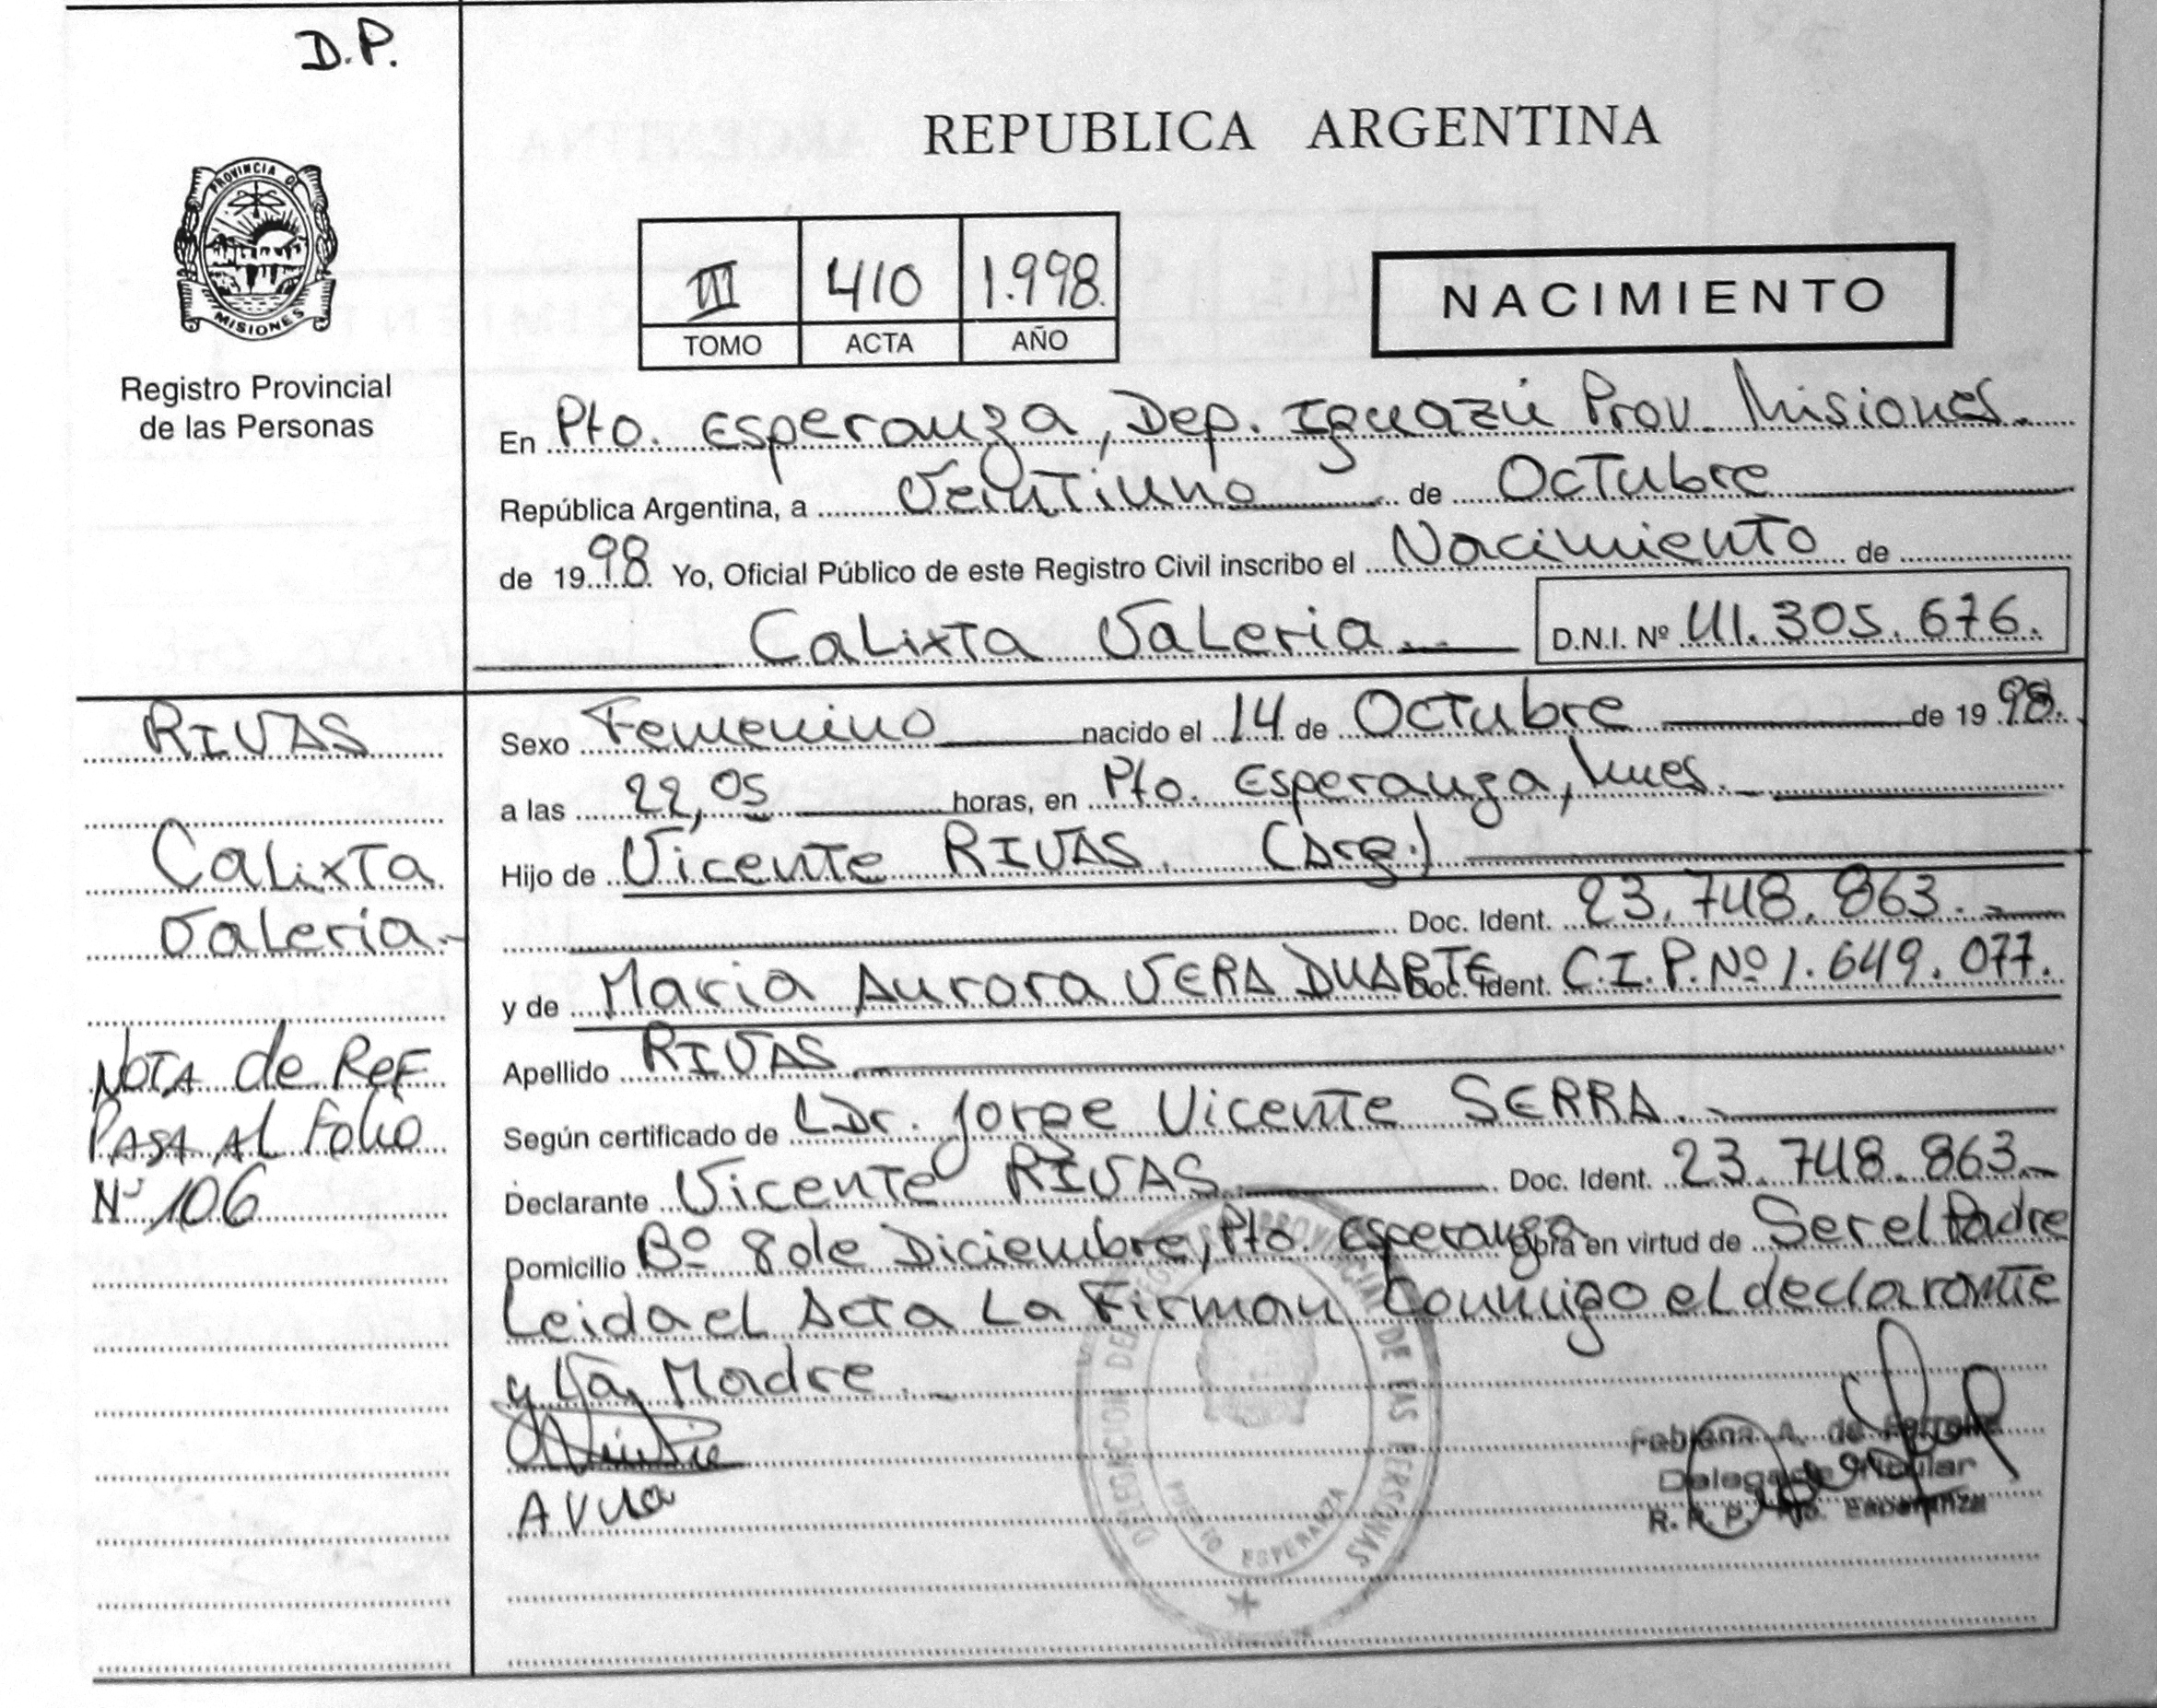 D.P.
REPUBLICA ARGENTINA
PROVINCIA DE
MISIONES
Registro Provincial
de las Personas
III 410 1.998.
TOMO ACTA AÑO
NACIMIENTO
En Pto. Esperanza, Dep. Iguazú Prov. Misiones.
República Argentina, a Veintiuno de Octubre
de 1998 Yo, Oficial Público de este Registro Civil inscribo el Nacimiento de
Calixta Valeria D.N.I. Nº 41.305.676.
RIVAS
Calixta
Valeria.-
Nota de Ref
Pasa al Folio
Nº 106
Sexo Femenino nacido el 14 de Octubre de 1998.
a las 22,05 horas, en Pto. Esperanza, Mnes.
Hijo de Vicente RIVAS. (Arg.)
Doc. Ident. 23.748.863.-
y de Maria Aurora VERA DUARTE Doc. Ident. C.I.P.Nº 1.649.077.
Apellido RIVAS
Según certificado de Dr. Jorge Vicente SERRA.
Declarante Vicente RIVAS Doc. Ident. 23.748.863.-
Domicilio Bº 8 de Diciembre, Pto. Esperanza Obra en virtud de Ser el Padre
Leida el Acta La Firman Conmigo el declarante
y La Madre.-
A Vera
Fabiana A. de
Delegada Titular
R.P.P. Pto. Esperanza
DELEGACION DEL REGISTRO PROVINCIAL DE LAS PERSONAS
PUERTO ESPERANZA